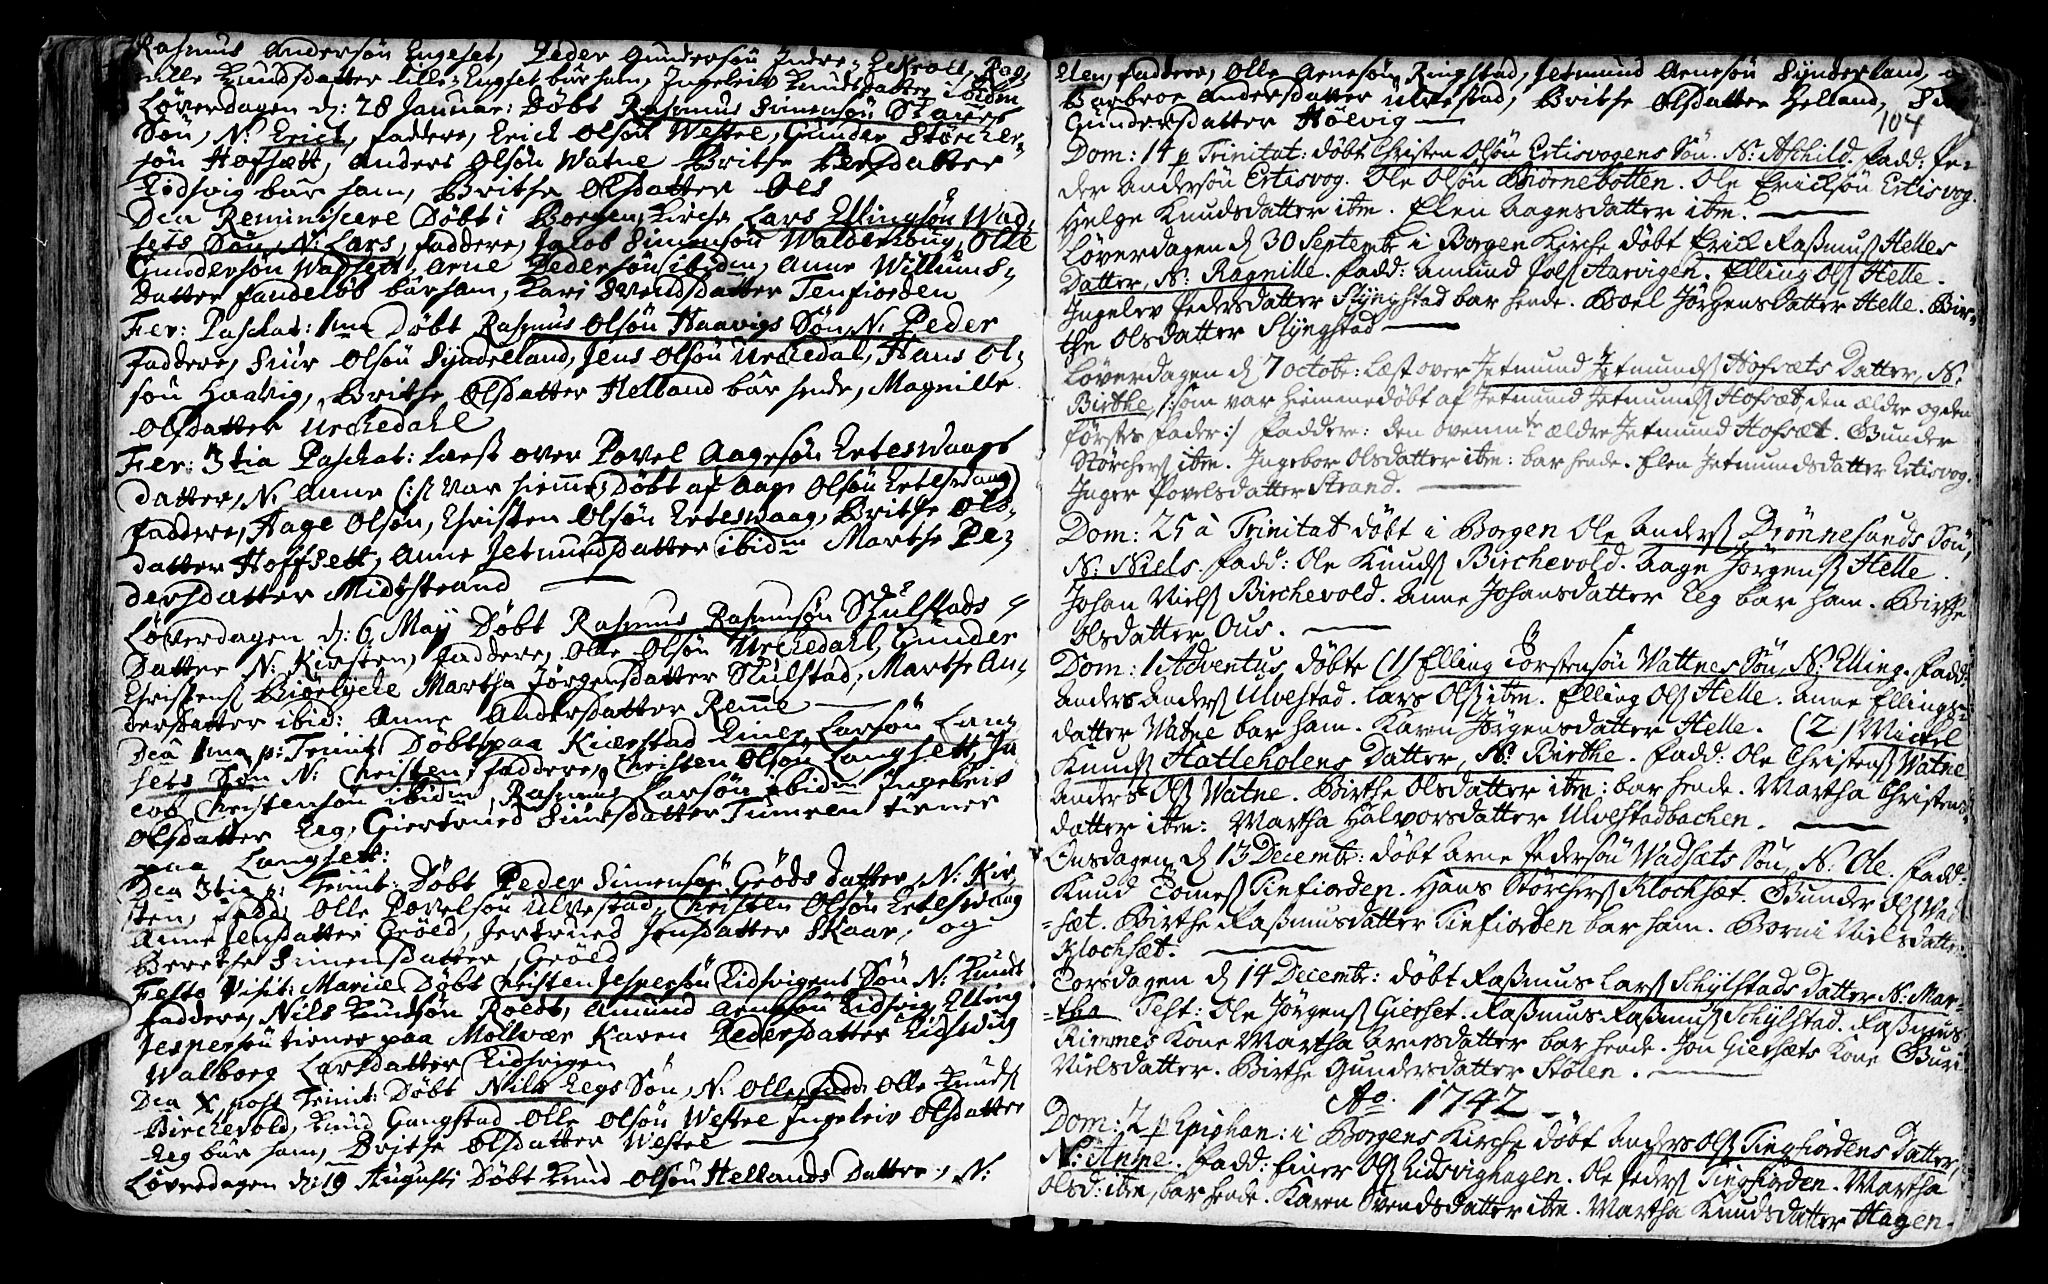 Rasmus Andersøn Engeset, Peder Gundersøn Indre-
nille Knudsdatter lille-Engset bar ham, Ingeleiv Knudsdatter
Løverdagen d: 28 Januar: Døbt Rasmus Simensøn Staves
Søn, N: Erick, faddere, Erick Olsøn Westre, Gunder Størcker-
søn Hofsætt, Anders Olsøn Watne Brithe Persdatter
Eidsvig bar ham, Brithe Olsdatter
Dca Reminiscere Døbt i Borgen Kirche Lars Ellingsøn Wad-
sets Søn, N: Lars, faddere, Jacob Simensøn Walderhoug, Olle
Gundersøn Wadsett, Arne Pedersøn ibidm, Anne Willums-
datter Fandeløb bar ham, Kari Svendsdatter Tenfiorden
Fer: Paschat: 1ma Døbt Rasmus Olsøn Haavigs Søn N: Peder
faddere, Siur Olsøn Synderland, Jens Olsøn Urchedal, Hans Ol-
søn Haavig, Brithe Olsdatter Helland bar hende, Magnille
Olsdatter Urchedahl
Fer: 3tia Paschat: læst over Povel Aagesøn Erteswaags
datter, N: Anne (: var hiemme Døbt af Aage Olsøn Erteswaag)
faddere, Hage Olsøn, Christen Olsøn Erteswaag, Brithe Ols-
datter Hoffsett, Anne Jetmundsdatter ibidm Marthe Pe-
dersdatter Midtstrand
Løverdagen d: 6 Maij Døbt Rasmus Rasmusøn Skulstads
Datter N: Kirsten, faddere, Olle Olsøn Urchedahl, Gunder
Christens Biørlyche Martha Jørgensdatter Skulstad, Marthe An-
dersdatter ibid: Anne Andersdatter Remme
Dca 1ma p: Trinit: Døbt paa Kierstad Einer Larsøn Lang-
sets Søn N: Christen, faddere, Christen Olsøn Langsett, Ja-
cob Christensøn ibidm, Rasmus Larsøn ibidm Ingeleiv
Olsdatter Eeg, Giertrued Simesdatter Tumren tiener
paa Langsett:
Dca 3tia p: Trinit: Døbt Peder Simensøn Grøds datter, N: Kir-
sten, fadd: Olle Povelsøn Ulvestad, Christen Olsøn Erteswaag
Anne Jensdatter Grøld, Jertrued Jensdatter Skaar, og
Berethe Simensdatter, Grøld
Festo Visit: Mariæ Døbt Christen Jespersøn Eidsvigens Søn N: Knud
faddere, Nils Knudsøn Roest, Amund Arnesøn Eidsvig, Elling
Jespersøn tiener paa Mollvær Karen Pedersdatter Eidswig
Walborg Larsdatter Eidsvigen
Dca X post Trinit: Døbt Nils Eegs Søn, N: Olle, fadd: Olle Knuds
Birchevold, Knud Gangstad Olle Olsøn Westre Ingeleiv Olsdatter
Eeg bar ham, Brithe Olsdatter Westre
Løverdagen d: 19 Augusti Døbt Knud Olsøn Hellands Datter, N:
Elen, faddere, Olle Arnesøn Ringstad, Jetmund Arnesøn Synderland,
Barbroe Andersdatter Ulvestad, Brithe Olsdatter Helland,
Gundersdatter Høevig
104
Dom: 14 p Trinitat: døbt Christen Olsøn Ertisvogens Søn. N: Aschild. fadd: Pe-
der Andersøn Ertisvog. Ole Olsøn Biørnebotten. Ole Ericksøn Ertisvog.
Helge Knudsdatter ibm. Elen Aagesdatter ibm.
Løverdagen d 30 Septembr i Borgen Kirche døbt Erick Rasmus Helles
Datter, N: Ragnille. fadd: Amund Pols Aarvigen. Elling Ols Helle.
Ingelev Pedersdatter Slyngstad bar hende. Boel Jørgensdatter Helle. Bir-
the Olsdatter Slyngstad
Løverdagen d 7 octobr: læst over Jetmund Jetmunds Hofsæts Datter, N:
Birthe /: som var Hiemmedøbt af Jetmund Jetmunds Hofsæt, den ældre og den
førstes fader:/ Faddere: den ovenmte ældre Jetmund Hofsæt. Gunder
Størchers ibm. Ingebor Olsdatter ibm: bar hende. Elen Jetmundsdatter Ertisvog.
Inger Povelsdatter Strand.
Dom: 25 à Trinitat døbt i Borgen Ole Anders Drønnesunds Søn,
N: Niels. fadd: Ole Knuds Birchevold. Aage Jørgens Helle.
Johan Niels Birchevold. Anne Johansdatter Eeg bar ham. Birthe
Olsdatter Ous.
Dom: 1 Adventus døbte (1) Elling Torstensøn Wattnes Søn, N: Elling. fadd:
Anders Anders Ulvestad. Lars Ols ibm. Elling Ols Helle. Anne Ellings-
datter Watne bar ham. Karen Jørgensdatter Helle. (2) Mickel
Knuds Hatleholens Datter, N: Birthe. fadd: Ole Christens Watne
Anders Ols Watne. Birthe Olsdatter ibm: bar hende. Martha Christens
datter ibm: Martha Halvorsdatter Ulvestadbachen.
Onsdagen d 13 Decembr: døbt Arne Pedersøn Wadsæts Søn, N: Ole. fadd:
Knud Tomes Tinfiorden. Hans Størchers Klochsæt. Gunder Ols Wad
=sæt. Birthe Rasmusdatter Tinfiorden bar ham. Borni Nielsdatter
Klochsæt.
Torsdagen d 14 Decembr: døbt Rasmus Lars Schylstads datter N: Mar-
=tha Test: Ole Jørgens Gierset. Rasmus Rasmus Schylstad. Rasmus
Rimmes Kone Martha Arnesdatter bar hende. Jon Giersets Kone Guri
Nielsdatter. Birthe Gundersdatter Stølen.
Ao. 1742
Dom: 2 p Epiphan: i Borgens Kirche døbt Anders Ols Tingfiordens Datter,
N: Anne. fadd: Einer Ols Eidsvighagen. Ole Peders Tingfiorden. Martha
Olsd: ibm, bar hende. Karen Svendsdatter ibm. Martha Knudsdatter Hagen.